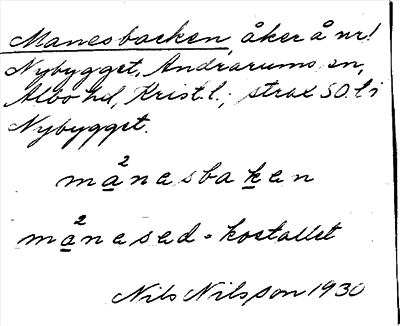 Manesbacken, åker å nr 1
Nybygget, Andrarums sn,
Albo hd, Krist. l.; strax SO. l i
Nybygget.
2
månesbaken
2
månesad-kostallet
Nils Nilsson 1930